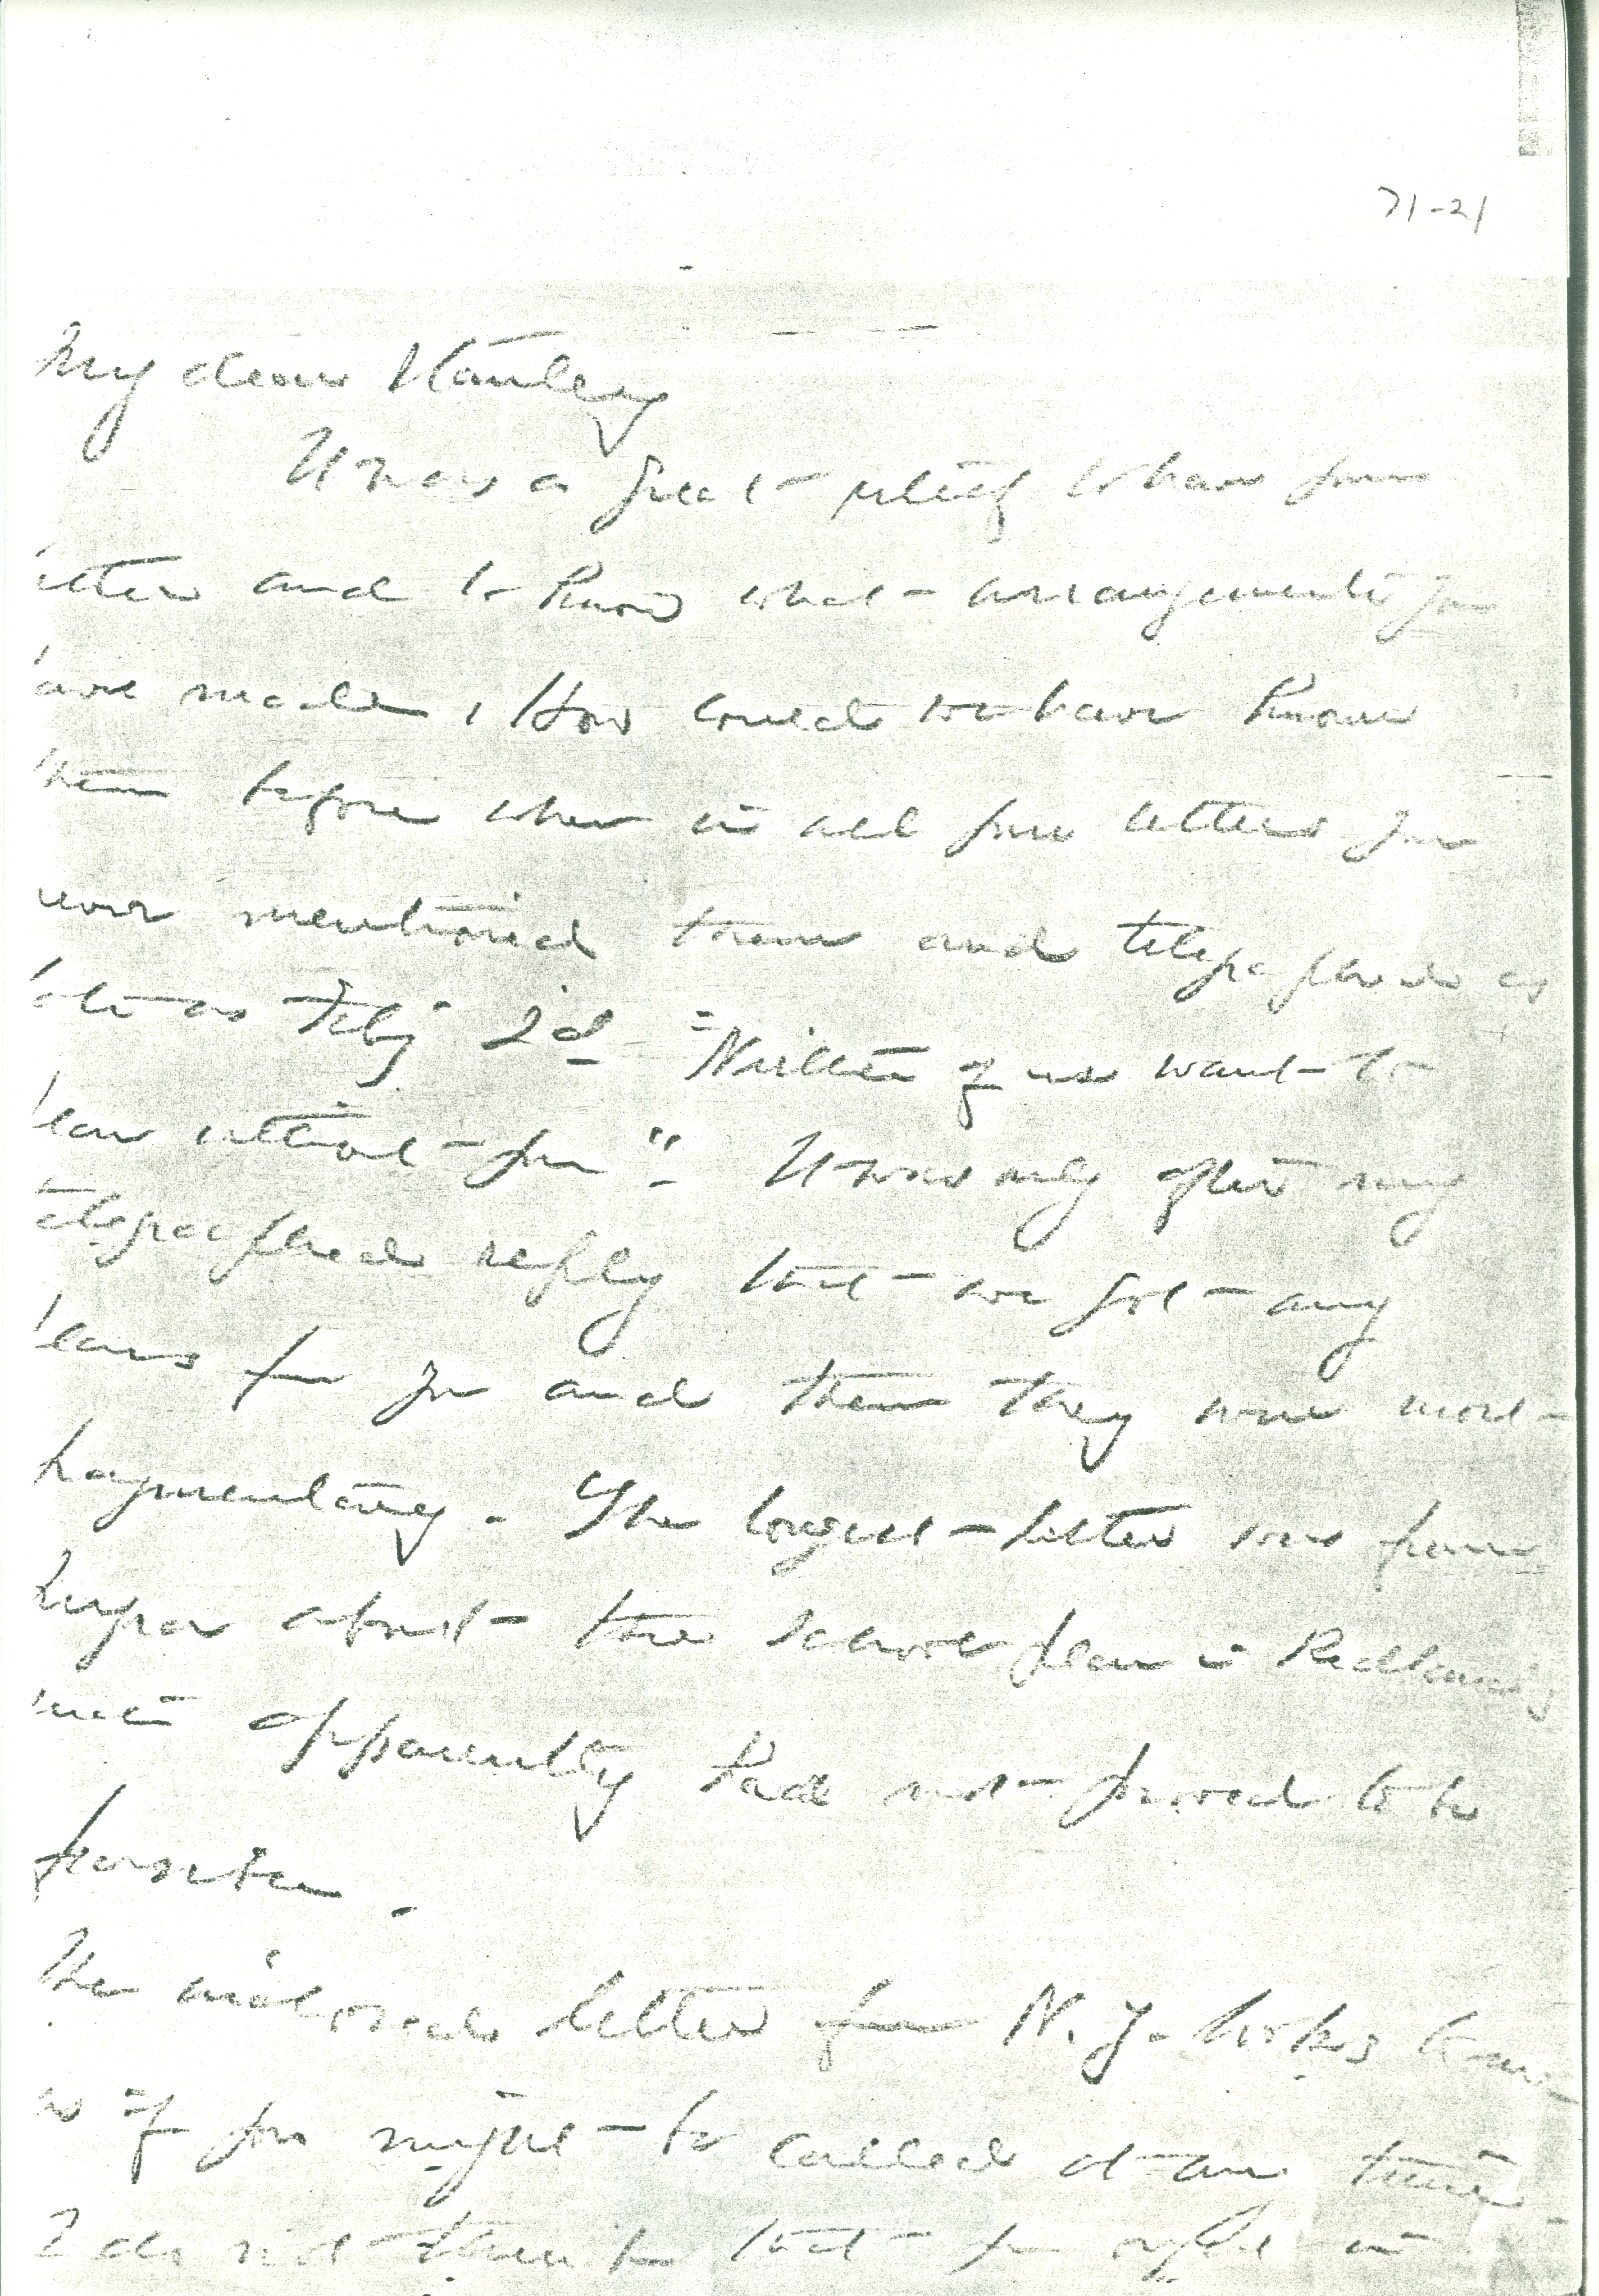 71-21
My dear Stanley
It was a great relief to have your
letter and to know what arrangements you
have made. How could we have known
them before when in all your letters you
never mentioned them and telegraphed as
late as Feby 2d "Neither of us want to
plan without you". It was only after my
telegraphed reply that we got any
plans from you and then they were most
fragmentary. The longest letter was from
about the school plan in Redlands
which apparently had not proved to be
possible.
The enclosed letter from N.Y. looks to me
as if you might be called at any time
I do not think that you ought in